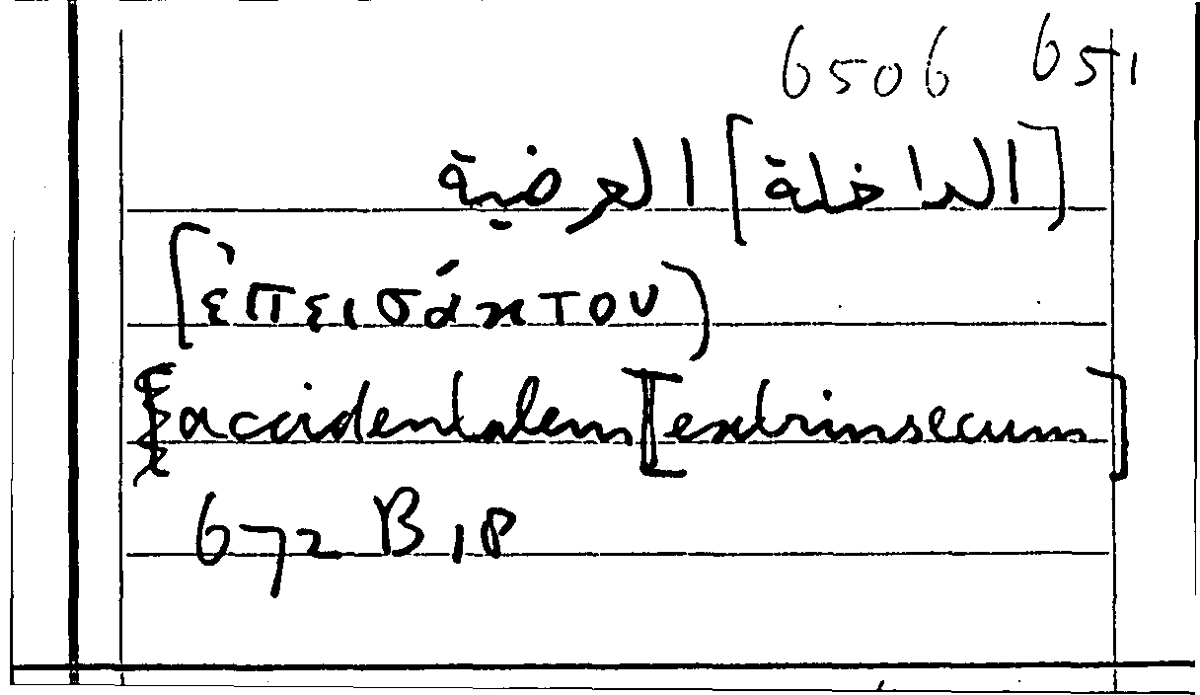 6506 651
[الداخلة] العرضية
[ἐπεισάκτου)
{accidentalem [extrinsecum]
672 B 18